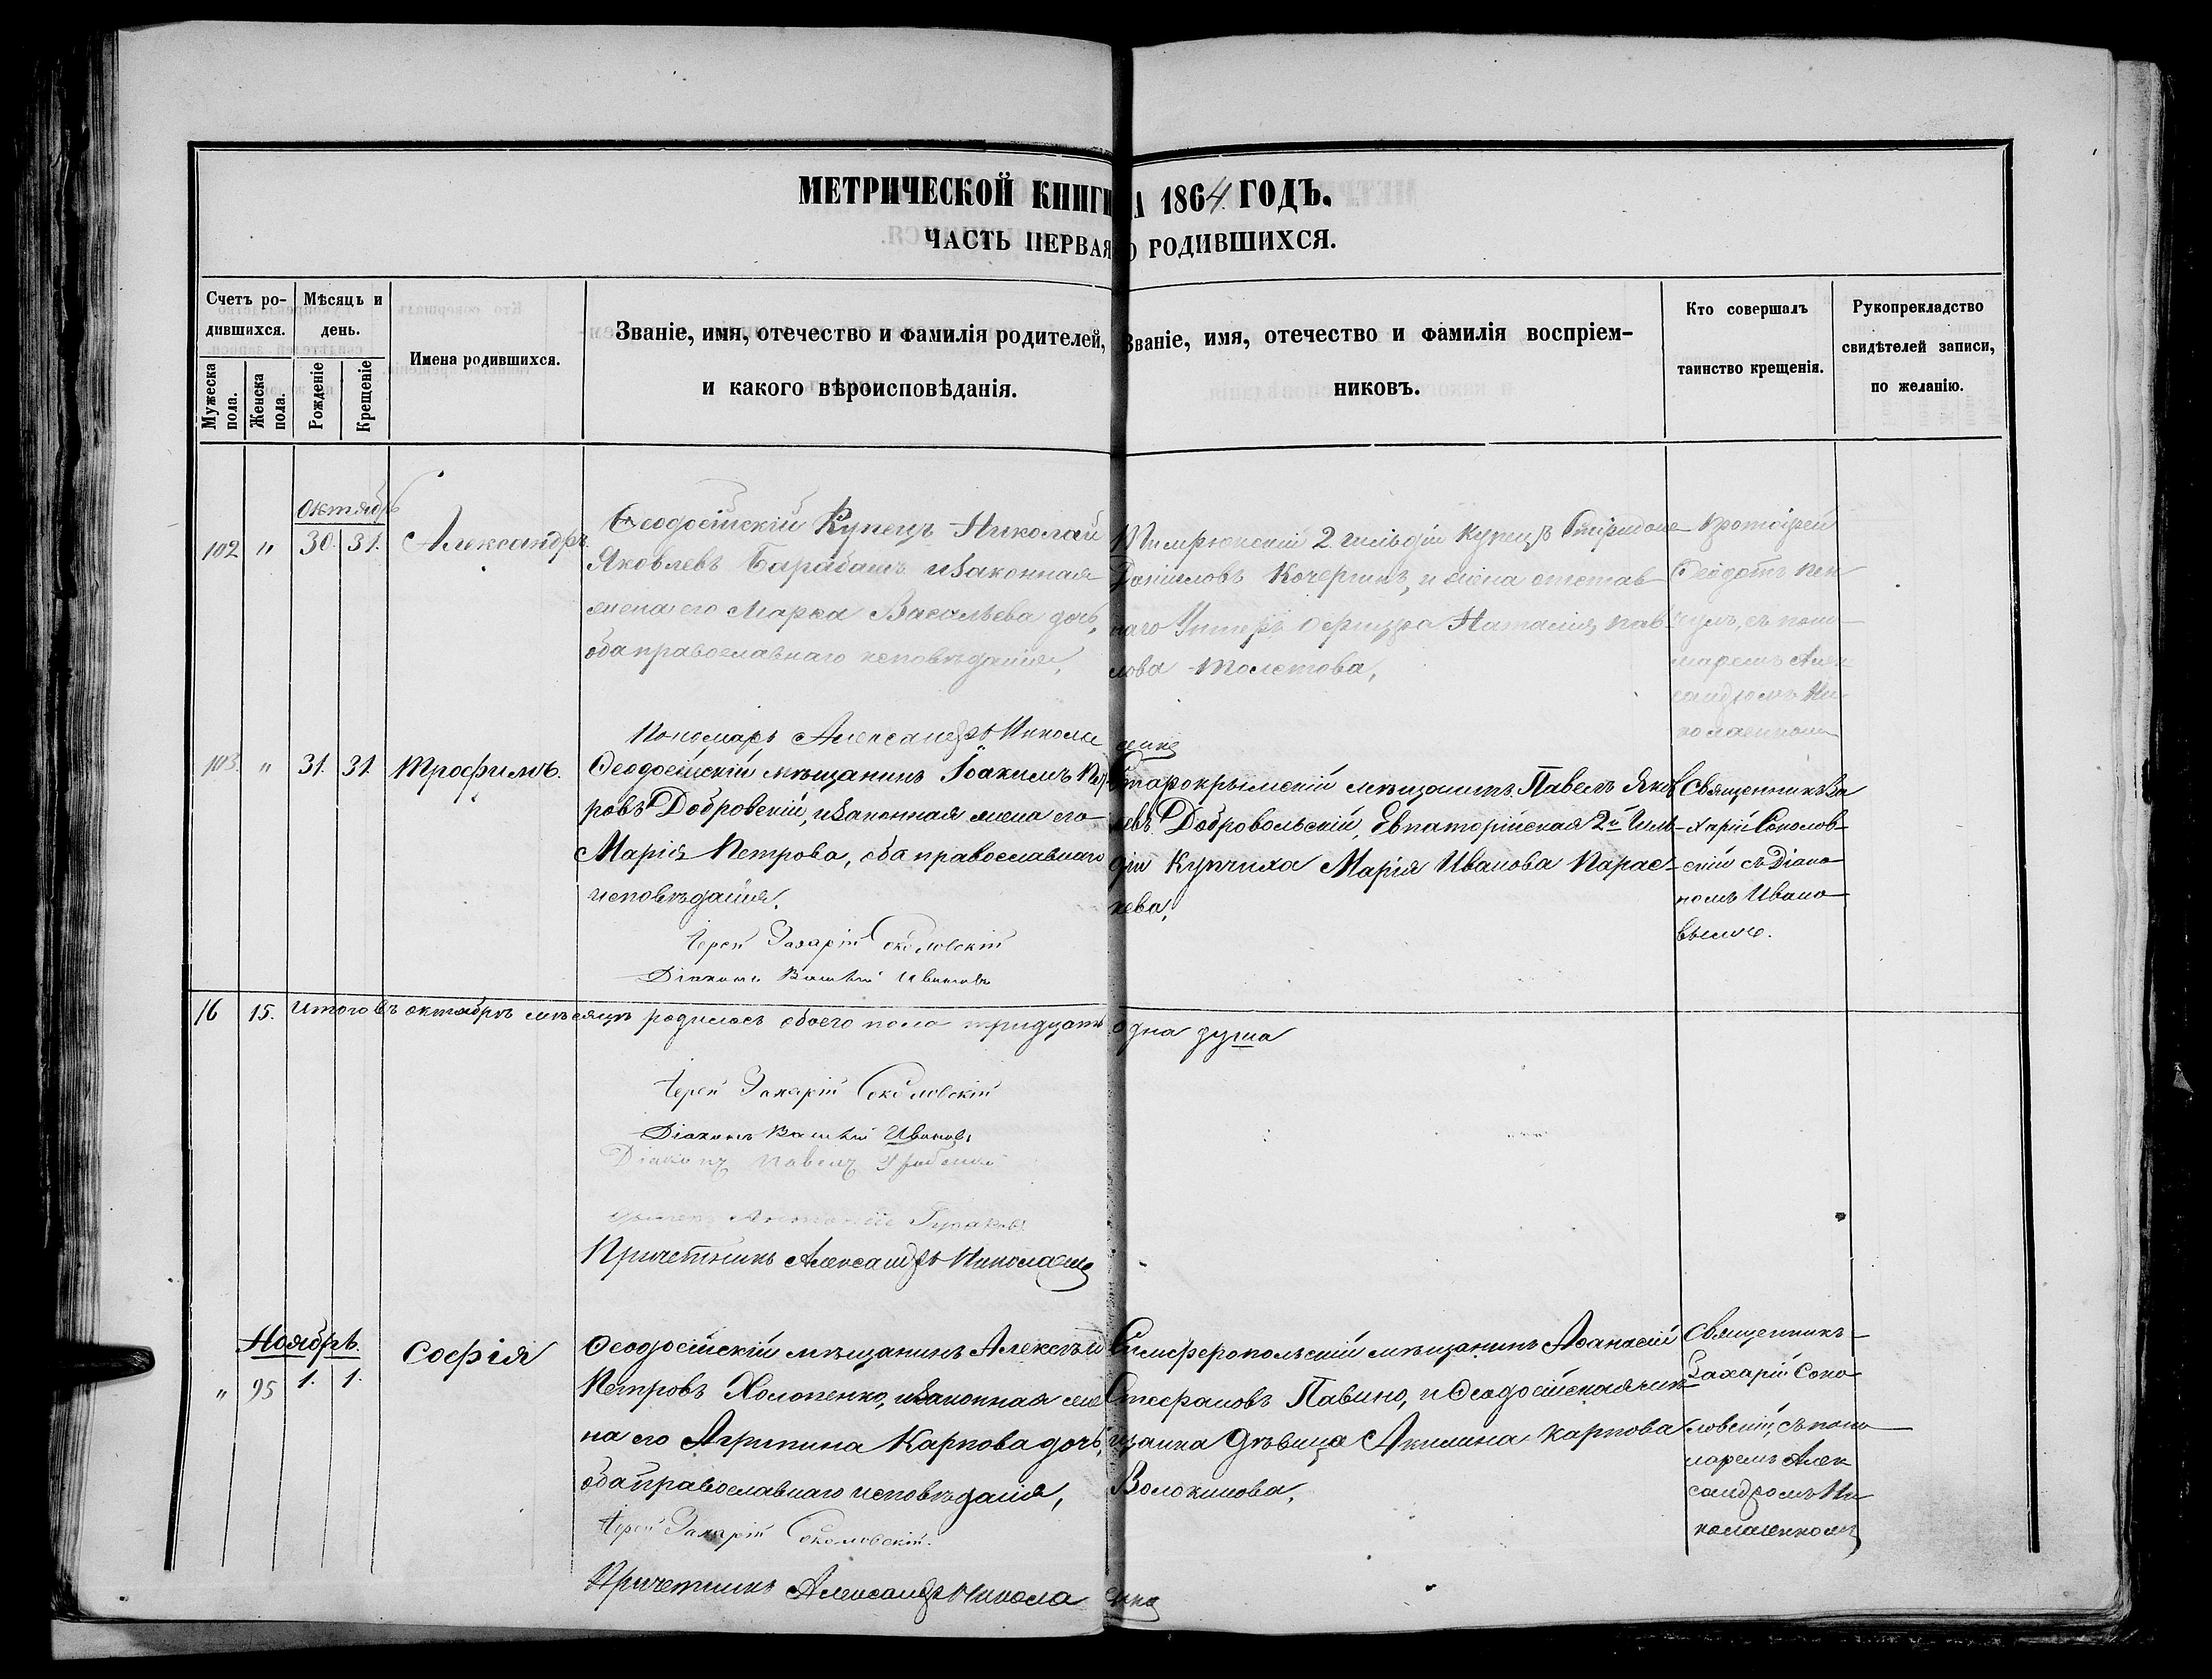 МЕТРИЧЕСКОЙ КНИГИ НА 1864 ГОДЪ.
ЧАСТЬ ПЕРВАЯ О РОДИВШИХСЯ.
Счетъ ро-
дившихся.
Мужеска пола.
Женска пола.
Мѣсяцъ и
день.
Рожденіе
Крещеніе
Имена родившихся.
Званіе, имя, отечество и фамилія родителей,
и какого вѣроисповѣданія.
Званіе, имя, отечество и фамилія воспріем-
никовъ.
Кто совершалъ
таинство крещенія.
Рукоприкладство
свидѣтелей записи,
по желанію.
Октябрь
102 " 30. 31. Александръ
Ѳеодосійскій Купецъ Николай
Яковлевъ Барабашъ и законная
жена его Марѳа Васильева дочь,
оба православнаго исповѣданія,
Темрюкскій 2. гильдіи Купецъ Спиридонъ
Даниловъ Кочергинъ, и жена отстав-
наго Унтеръ Офицера Наталія Пав-
лова Толстова,
Протоіерей
Ѳеодотъ
съ поно-
маремъ Алек-
сандромъ Ни-
колаенкомъ
Пономарь Александръ Николаенко
103. " 31. 31. Трофимъ.
Ѳеодосійскій мѣщанинъ Іоакимъ Пет-
ровъ Добровскій, и законная жена его
Марія Петрова, оба православнаго
исповѣданія.
Старокрымскій мѣщанинъ Павелъ Яков-
левъ Добровольскій, Евпаторійская 2й Гиль-
діи Купчиха Марія Иванова Парас-
кева,
Священникъ За-
харій Соколов-
скій съ Діако-
номъ Ивано-
вымъ.
Іерей Захарій Соколовскій
Діаконъ Иванов
16 15. Итого въ октябрѣ мѣсяцѣ родилось обоего пола тридцать одна душа
Іерей Захарій Соколовскій
Діаконъ Иванов
Діаконъ Павелъ
Антоній
Причетникъ Александръ Николаенко
Ноябрь.
" 95 1. 1. Софія
Ѳеодосійскій мѣщанинъ Алексѣй
Петровъ Холопенко, и законная же-
на его Агрипина Карпова дочь,
оба православнаго исповѣданія,
Симферопольскій мѣщанинъ Аѳанасій
Стефановъ Павино, и Ѳеодосійская мѣ-
щанка дѣвица Акилина Карпова
Волокинова,
Священникъ
Захарій Соко-
ловскій, съ поно-
маремъ Алек-
сандромъ Ни-
колаенкомъ
Іерей Захарій Соколовскій.
Причетникъ Александръ Николаенко